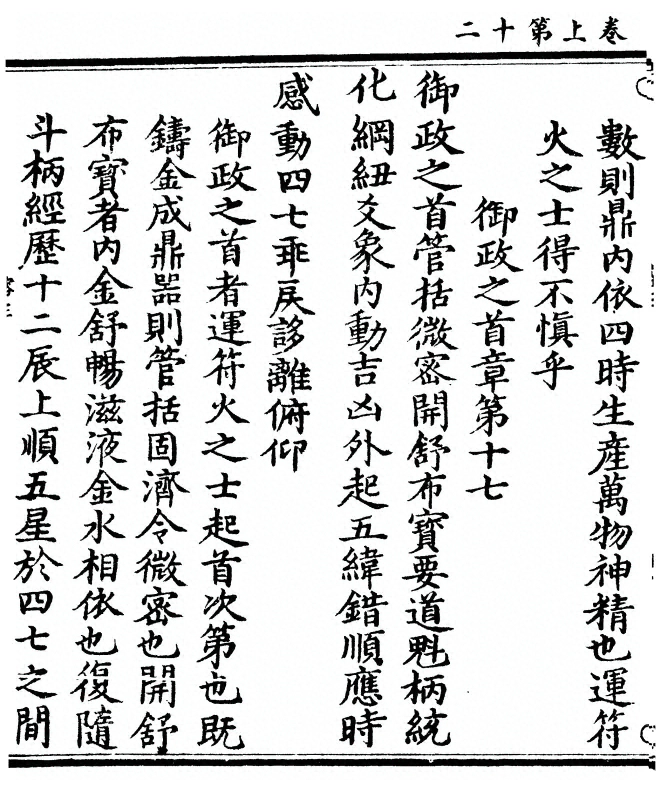 卷上第十二
數則鼎內依四時生產萬物神精也運符
火之士得不慎乎
御政之首章第十七
御政之首管括微密開舒布寶要道魁柄統
化綱紐爻象內動吉凶外起五緯錯順應時
感動四七乖戾誃離俯仰
御政之首者運符火之士起首次第也既
鑄金成鼎器則管括固濟令微密也開舒
布寶者內金舒暢滋液金水相依也復隨
斗柄經歷十二辰上順五星於四七之間